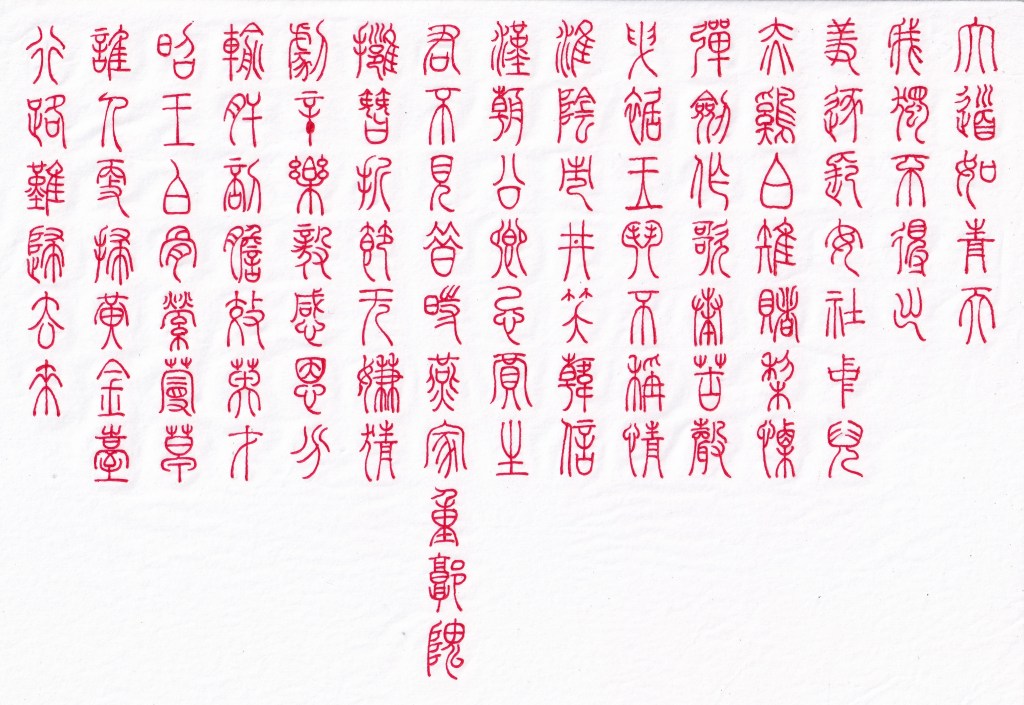 大道如青天
我獨不得出
羞逐長安社中兒
赤鷄白雉賭梨慄
彈劍作歌奏苦聲
曳裾王門不稱情
淮陰市井笑韓信
漢朝公卿忌賈生
君不見昔時燕家重郭隗
擁篲折節无嫌猜
劇辛樂毅感恩分
輸肝剖膽效英才
昭王白骨縈蔓草
誰人更掃黃金臺
行路難歸去來